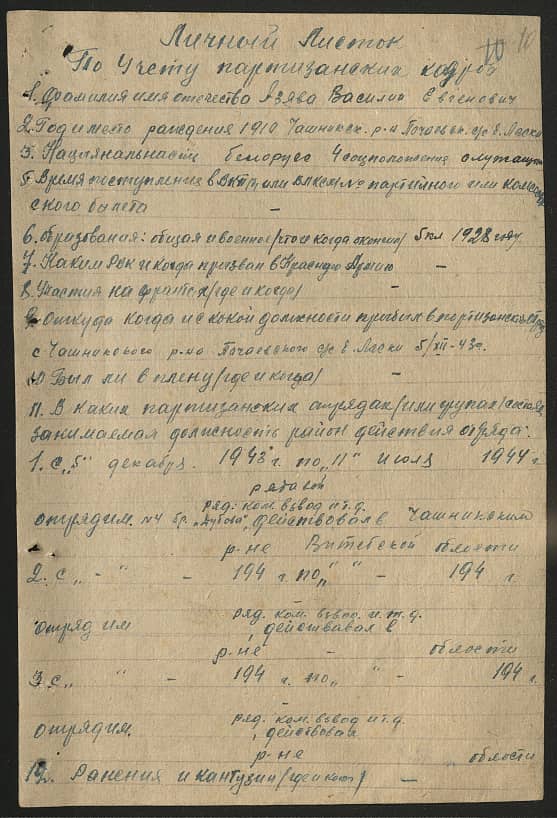 10 10
Личный Листок
По Учету партизанских кадров
1. Фамилия имя отечество Азява Василий Евгенович
2. Год и место раждения 1910 Чашникск. р-н Почаевск. с/с д. Ляски
3. Нацияналь­насти белорусс 4 соцположение служащий
5 Время поступление в ВКП(б) или ВЛКСМ № партийного или комсомоль
ского билета —
6. образования: общая и военное (что и когда окончил) 5 кл 1928 году.
7. Каким Рвк и когда призван в Красную Армию —
8. Участия на франтах (где и когда) —
9. откуда когда и с какой должности прибыл в партизанский отряд
с Чашникского р-на Почаевского с/с д. Ляски 5/XII-43 г.
10 Был ли в плену (где и когда) —
11. В каких партизанских атрядах (или групах) состоял
занимаемая должность район действия отряда:
1. с „5" декабря. 1943 г. по „11" июля 1944 г.
рядавой
ряд. ком. взвод и т. д.
отрядим. №4 бр. „Дубова", действовал в Чашникским
р-не Витебской области
2. с „ - " - 194 г. по „ " - 194 г.
ряд. ком. взвод. и. т. д.
отряд им , действавал в
р-не - области
3. с „ " - 194 г. по „ " - 194 г.
-
ряд. ком. взвод и т. д.
отрядим. , действовал
р-не " области
12. Ранения и кантузии (где и когда) —